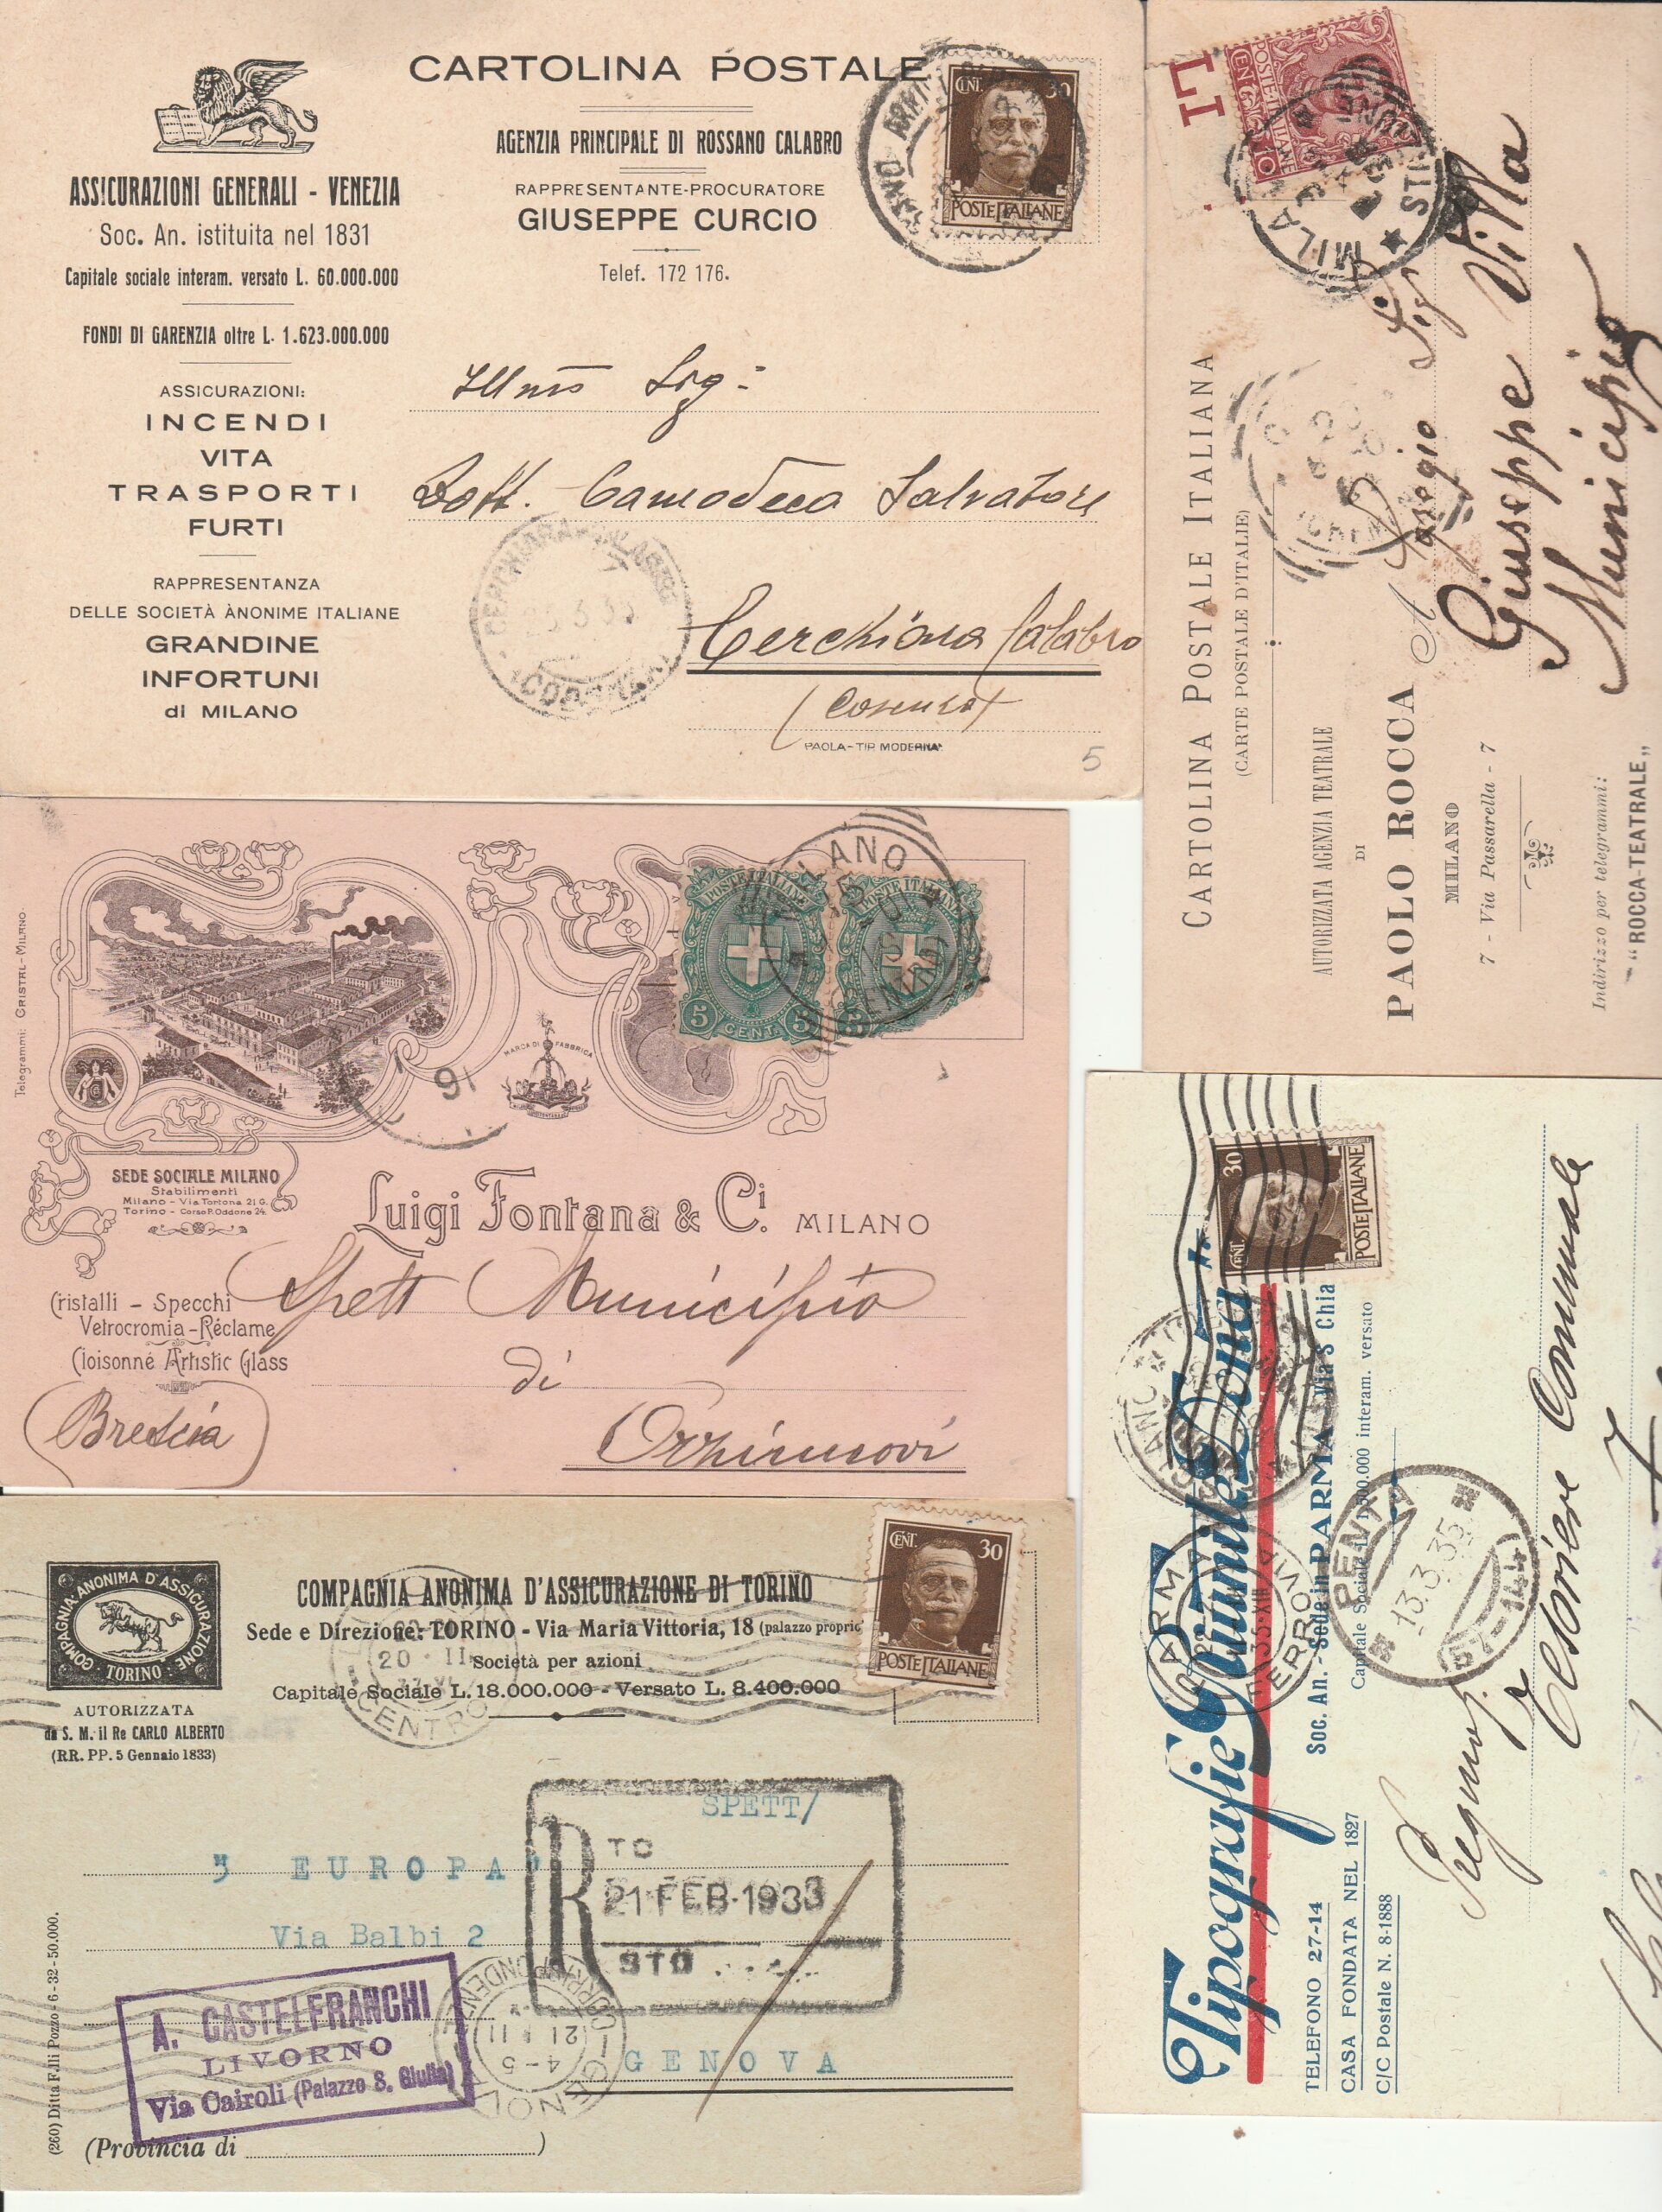 CARTOLINA POSTALE
ASSICURAZIONI GENERALI - VENEZIA
Soc. An. istituita nel 1831
Capitale sociale interam. versato L. 60.000.000
FONDI DI GARENZIA oltre L. 1.623.000.000
ASSICURAZIONI:
INCENDI
VITA
TRASPORTI
FURTI
RAPPRESENTANZA
DELLE SOCIETÀ ÀNONIME ITALIANE
GRANDINE
INFORTUNI
di MILANO
AGENZIA PRINCIPALE DI ROSSANO CALABRO
RAPPRESENTANTE-PROCURATORE
GIUSEPPE CURCIO
Telef. 172 176.
CENT. 30
POSTE ITALIANE
Illmo Sig:
Dott. Camodeca Salvatore
Cerchiara Calabro
(Cosenza)
PAOLA-TIP MODERNA
5
LI
POSTE ITALIANE
CENT. 10
MILANO
CARTOLINA POSTALE ITALIANA
(CARTE POSTALE D'ITALIE)
AUTORIZZATA AGENZIA TEATRALE
DI
PAOLO ROCCA
MILANO
7 - Via Passarella - 7
Indirizzo per telegrammi:
"ROCCA-TEATRALE„
A
Giuseppe Villa
Municipio
Telegrammi: CRISTAL-MILANO.
MARCA DI FABBRICA
POSTE ITALIANE
5 CENT. 5
POSTE ITALIANE
5
MILANO
SEDE SOCIALE MILANO
Stabilimenti
Milano - Via Tortona 21 G.
Torino - Corso P. Oddone 24.
Luigi Fontana & Ci. MILANO
Cristalli - Specchi
Vetrocromia - Réclame
Cloisonné Artistic Glass
Spett Municipio
di
Orzinuovi
(Brescia)
COMPAGNIA ANONIMA D'ASSICURAZIONE
TORINO
AUTORIZZATA
da S. M. il Re CARLO ALBERTO
(RR. PP. 5 Gennaio 1833)
COMPAGNIA ANONIMA D'ASSICURAZIONE DI TORINO
Sede e Direzione: TORINO - Via Maria Vittoria, 18 (palazzo propric
Società per azioni
Capitale Sociale L. 18.000.000 - Versato L. 8.400.000
CENT. 30
POSTE ITALIANE
20 · II
CENTRO
SPETT/
" EUROPA"
Via Balbi 2
GENOVA
R
TO
21 FEB·1933
STO
A. CASTELFRANCHI
LIVORNO
Via Cairoli (Palazzo S. Giulia)
(260) Ditta F.lli Pozzo - 6-32-50.000.
(Provincia di )
CENT. 30
POSTE ITALIANE
Tipografie Donati
Soc. An. - Sede in PARMA - Via S Chia
Capitale Sociale interam. versato
TELEFONO 27-14
CASA FONDATA NEL 1827
C/C Postale N. 8-1888
PARMA
FERROVIA
PENTA
13.3.35
(57-144)
Tesoriere Comunale